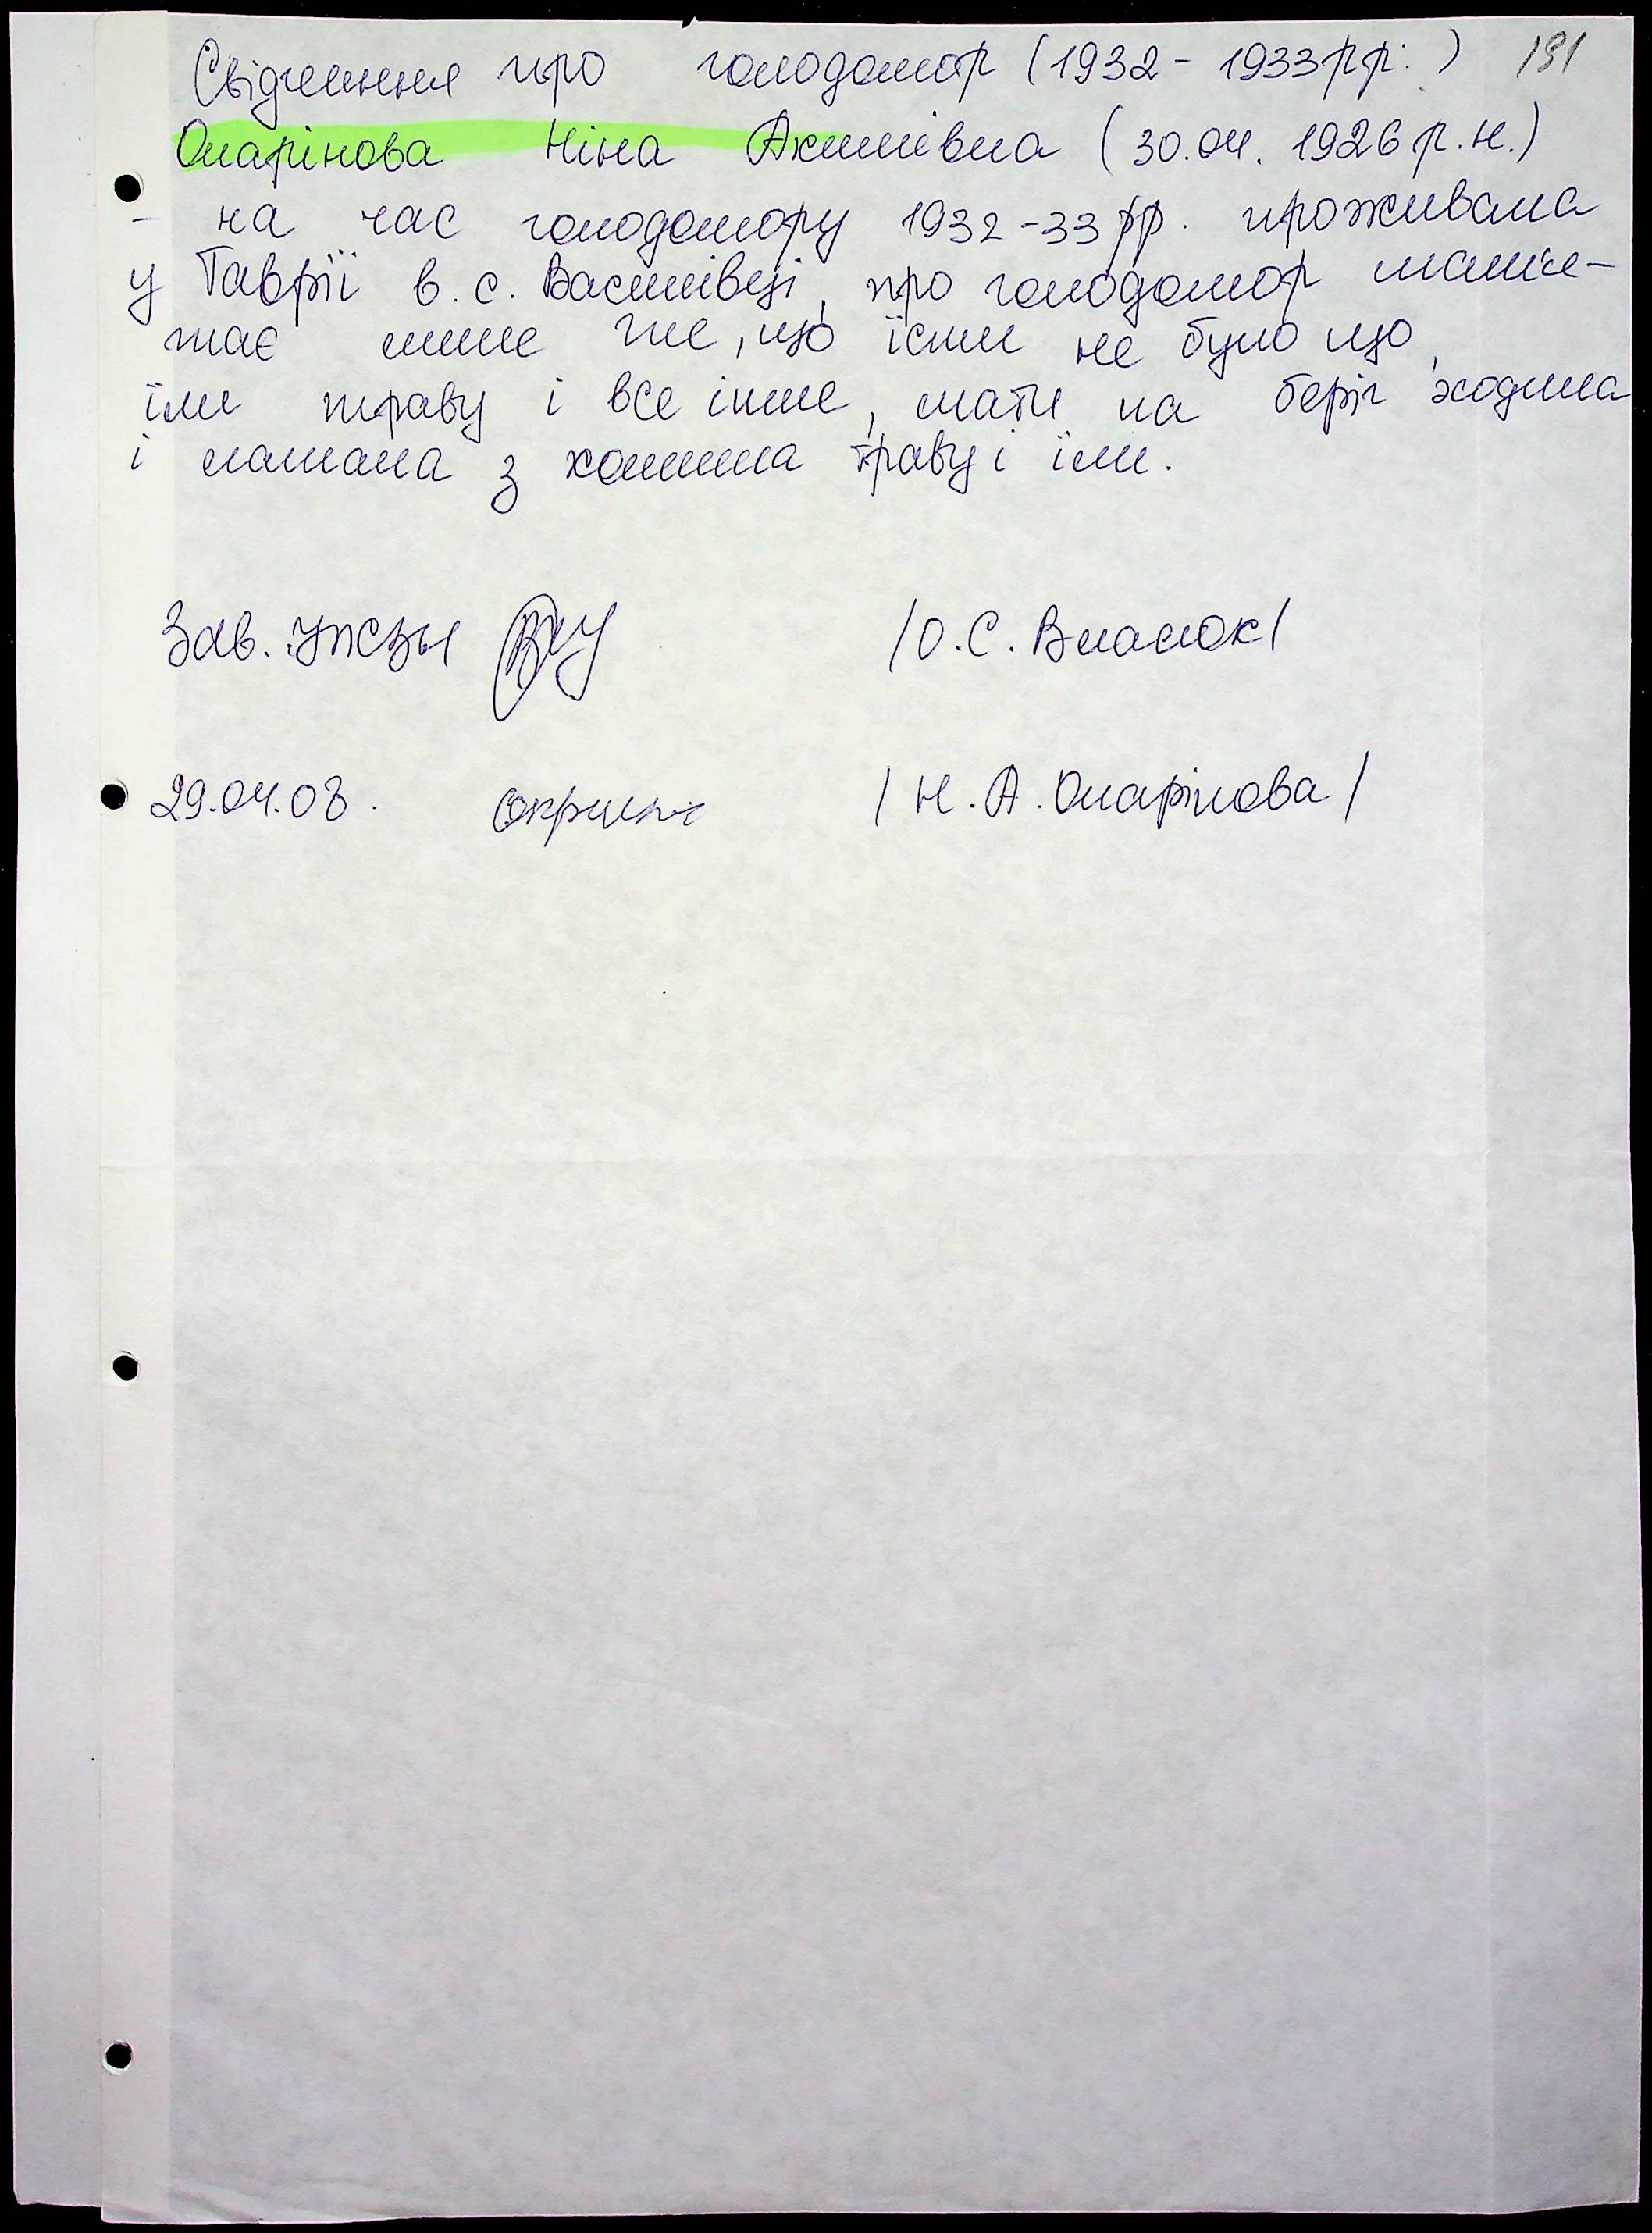 Свідчення про голодомор (1932 - 1933рр.) 191
Опарінова Ніна Акимівна (30.04. 1926 р.н.)
- на час голодомору 1932-33 рр. проживала
у Таврії в. с. Василівці, про голодомор пам'я-
тає лише те, що їсти не було що,
їли траву і все інше, мати на беріг ходила
і ламала з комиша траву і їли.
Зав.
/О.С. Власюк/
29.04.08.
/ Н.А. Опарінова /